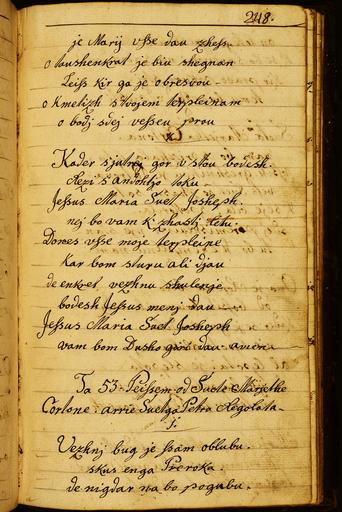 248.
je Marij vsse dau zhess
o taushenkrat je biu shegnan
Leiss kir ga je obresvou
o kmetizh stvojem terpleinam
o bodj sdej vesseu prou
Kader sjutrej gor vstou bodesh.
Rezi s'andohtjo toku
Jessus Maria Suet Josheph.
nej bo vam k'zhasti tetu.
Dones vsse moje terpleine
kar bom sturu ali djau
de enkret vezhnu shulenje
bodesh Jessus menj dau
Jessus Maria Suet Josheph
vam bom Dusho gori dau amen
Ta 53. Peissem od Suete Marjethe
Cortone. arrie Suetga Petra Regolata
1.
Vezhnj bug je ssam oblubu.
skus enga Preroka.
de nigdar na bo pogubu.